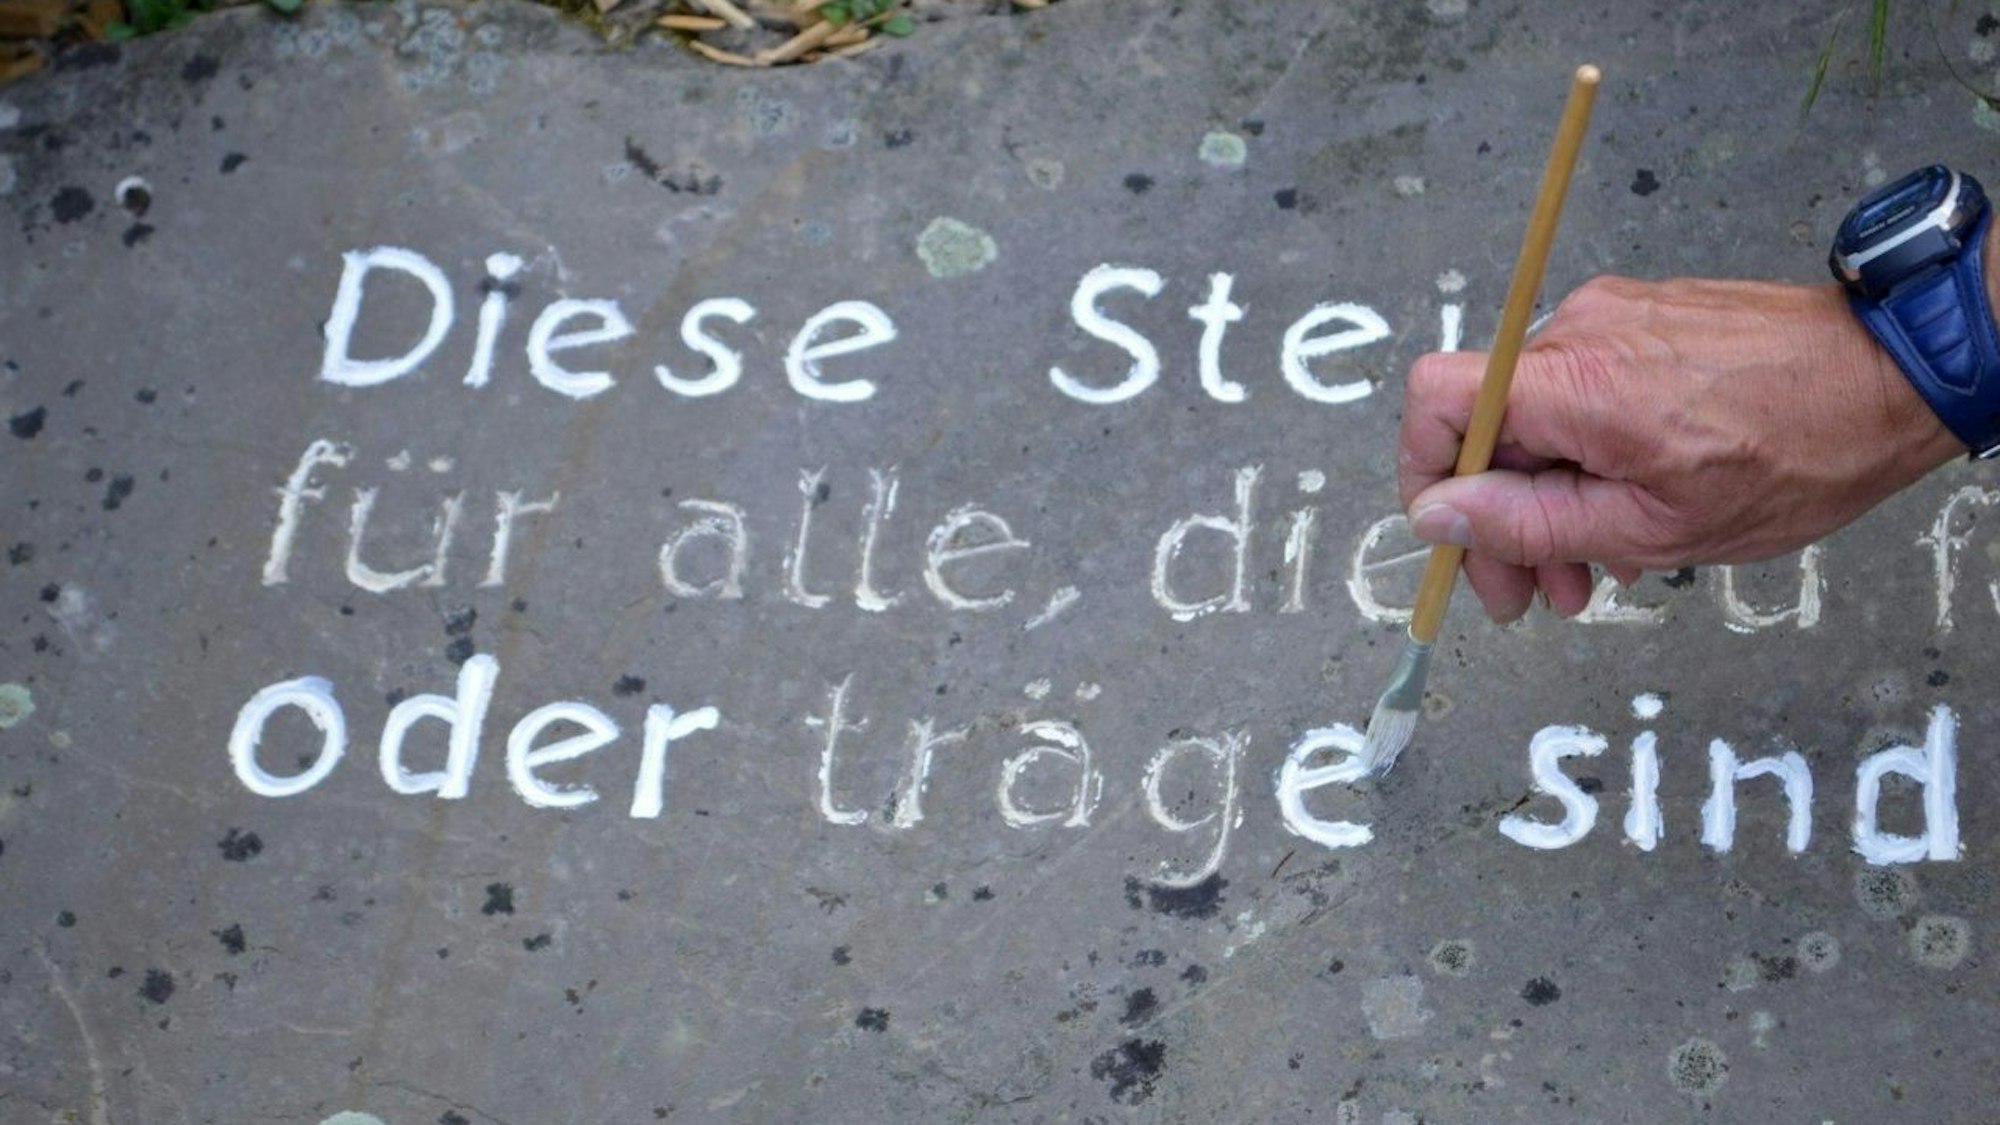 Diese
für alle, die zu
oder träge sind